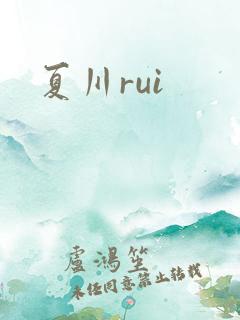 夏川rui
盧鴻笙
未经同意禁止转载